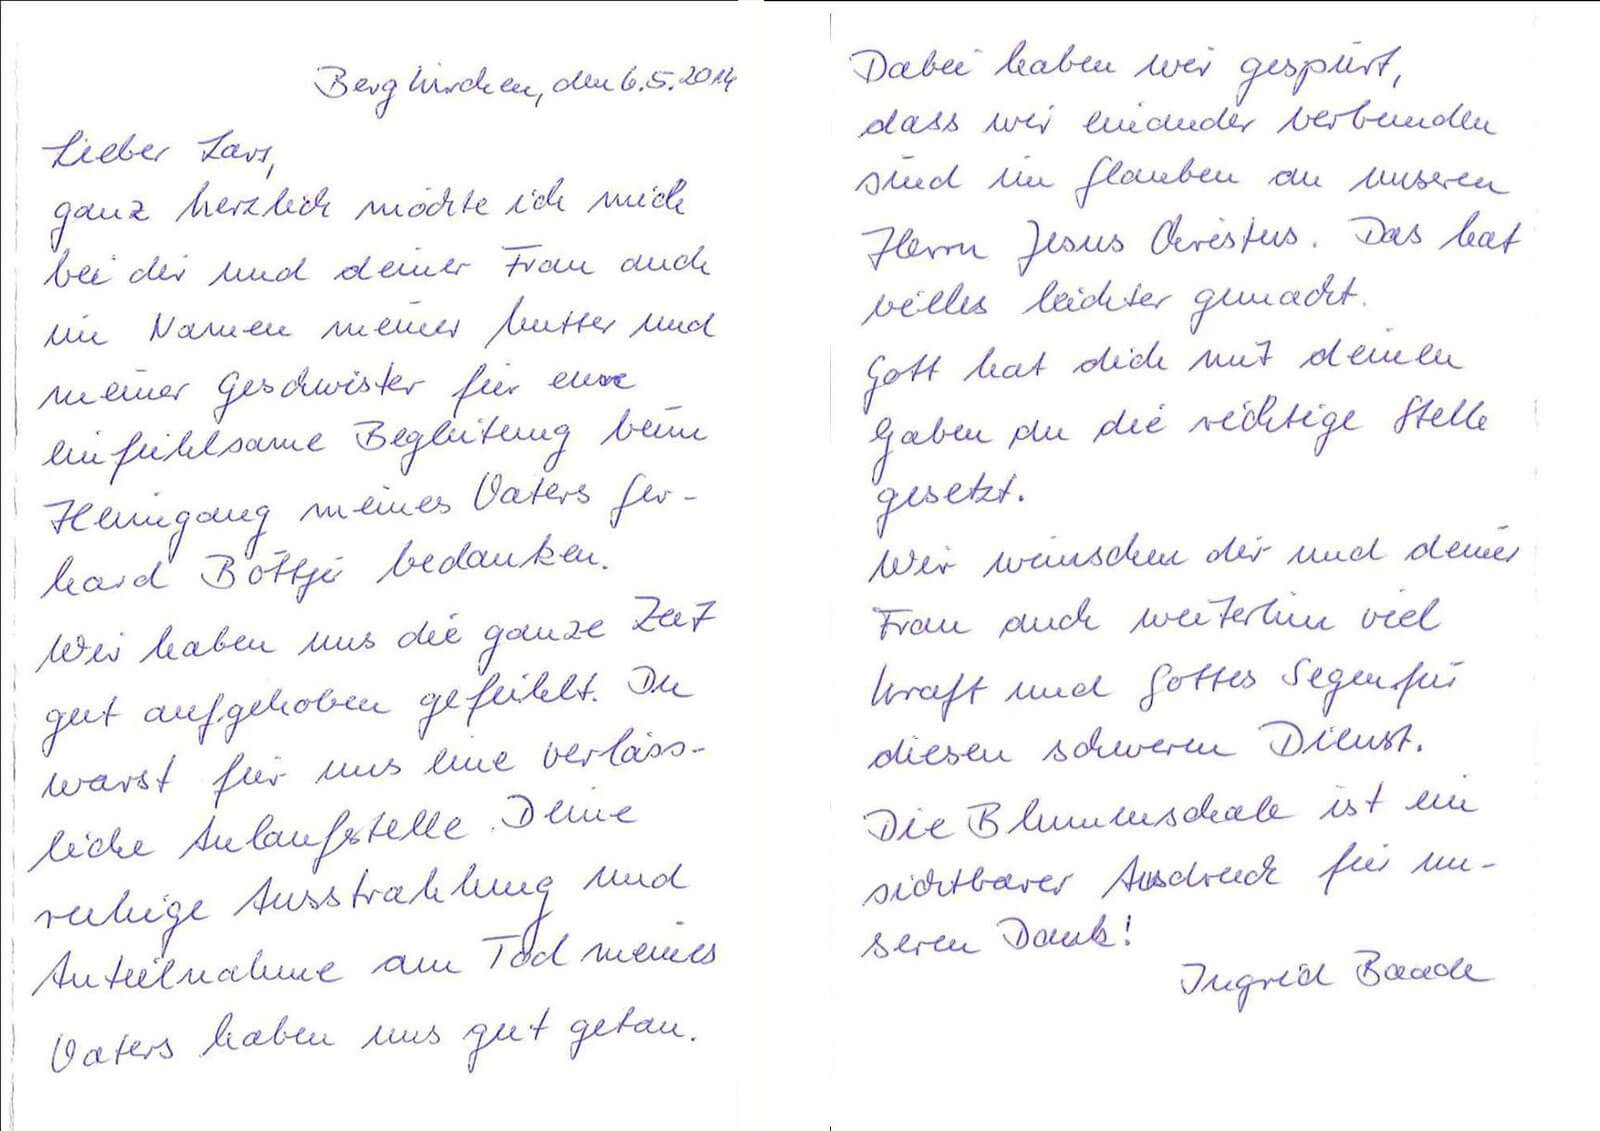 Bergkirchen, den 6.5.2014
Lieber Lars,
ganz herzlich möchte ich mich
bei dir und deiner Frau auch
im Namen meiner Mutter und
meiner Geschwister für eure
einfühlsame Begleitung beim
Heimgang meines Vaters Ger-
hard Böttjer bedanken.
Wir haben uns die ganze Zeit
gut aufgehoben gefühlt. Du
warst für uns eine verläss-
liche Anlaufstelle. Deine
ruhige Ausstrahlung und
Anteilnahme am Tod meines
Vaters haben uns gut getan.
Dabei haben wir gespürt,
dass wir einander verbunden
sind im Glauben an unseren
Herrn Jesus Christus. Das hat
vieles leichter gemacht.
Gott hat dich mit deinen
Gaben an die richtige Stelle
gesetzt.
Wir wünschen dir und deiner
Frau auch weiterhin viel
Kraft und Gottes Segen für
diesen schweren Dienst.
Die Blumenschale ist ein
sichtbarer Ausdruck für un-
seren Dank!
Ingrid Baade